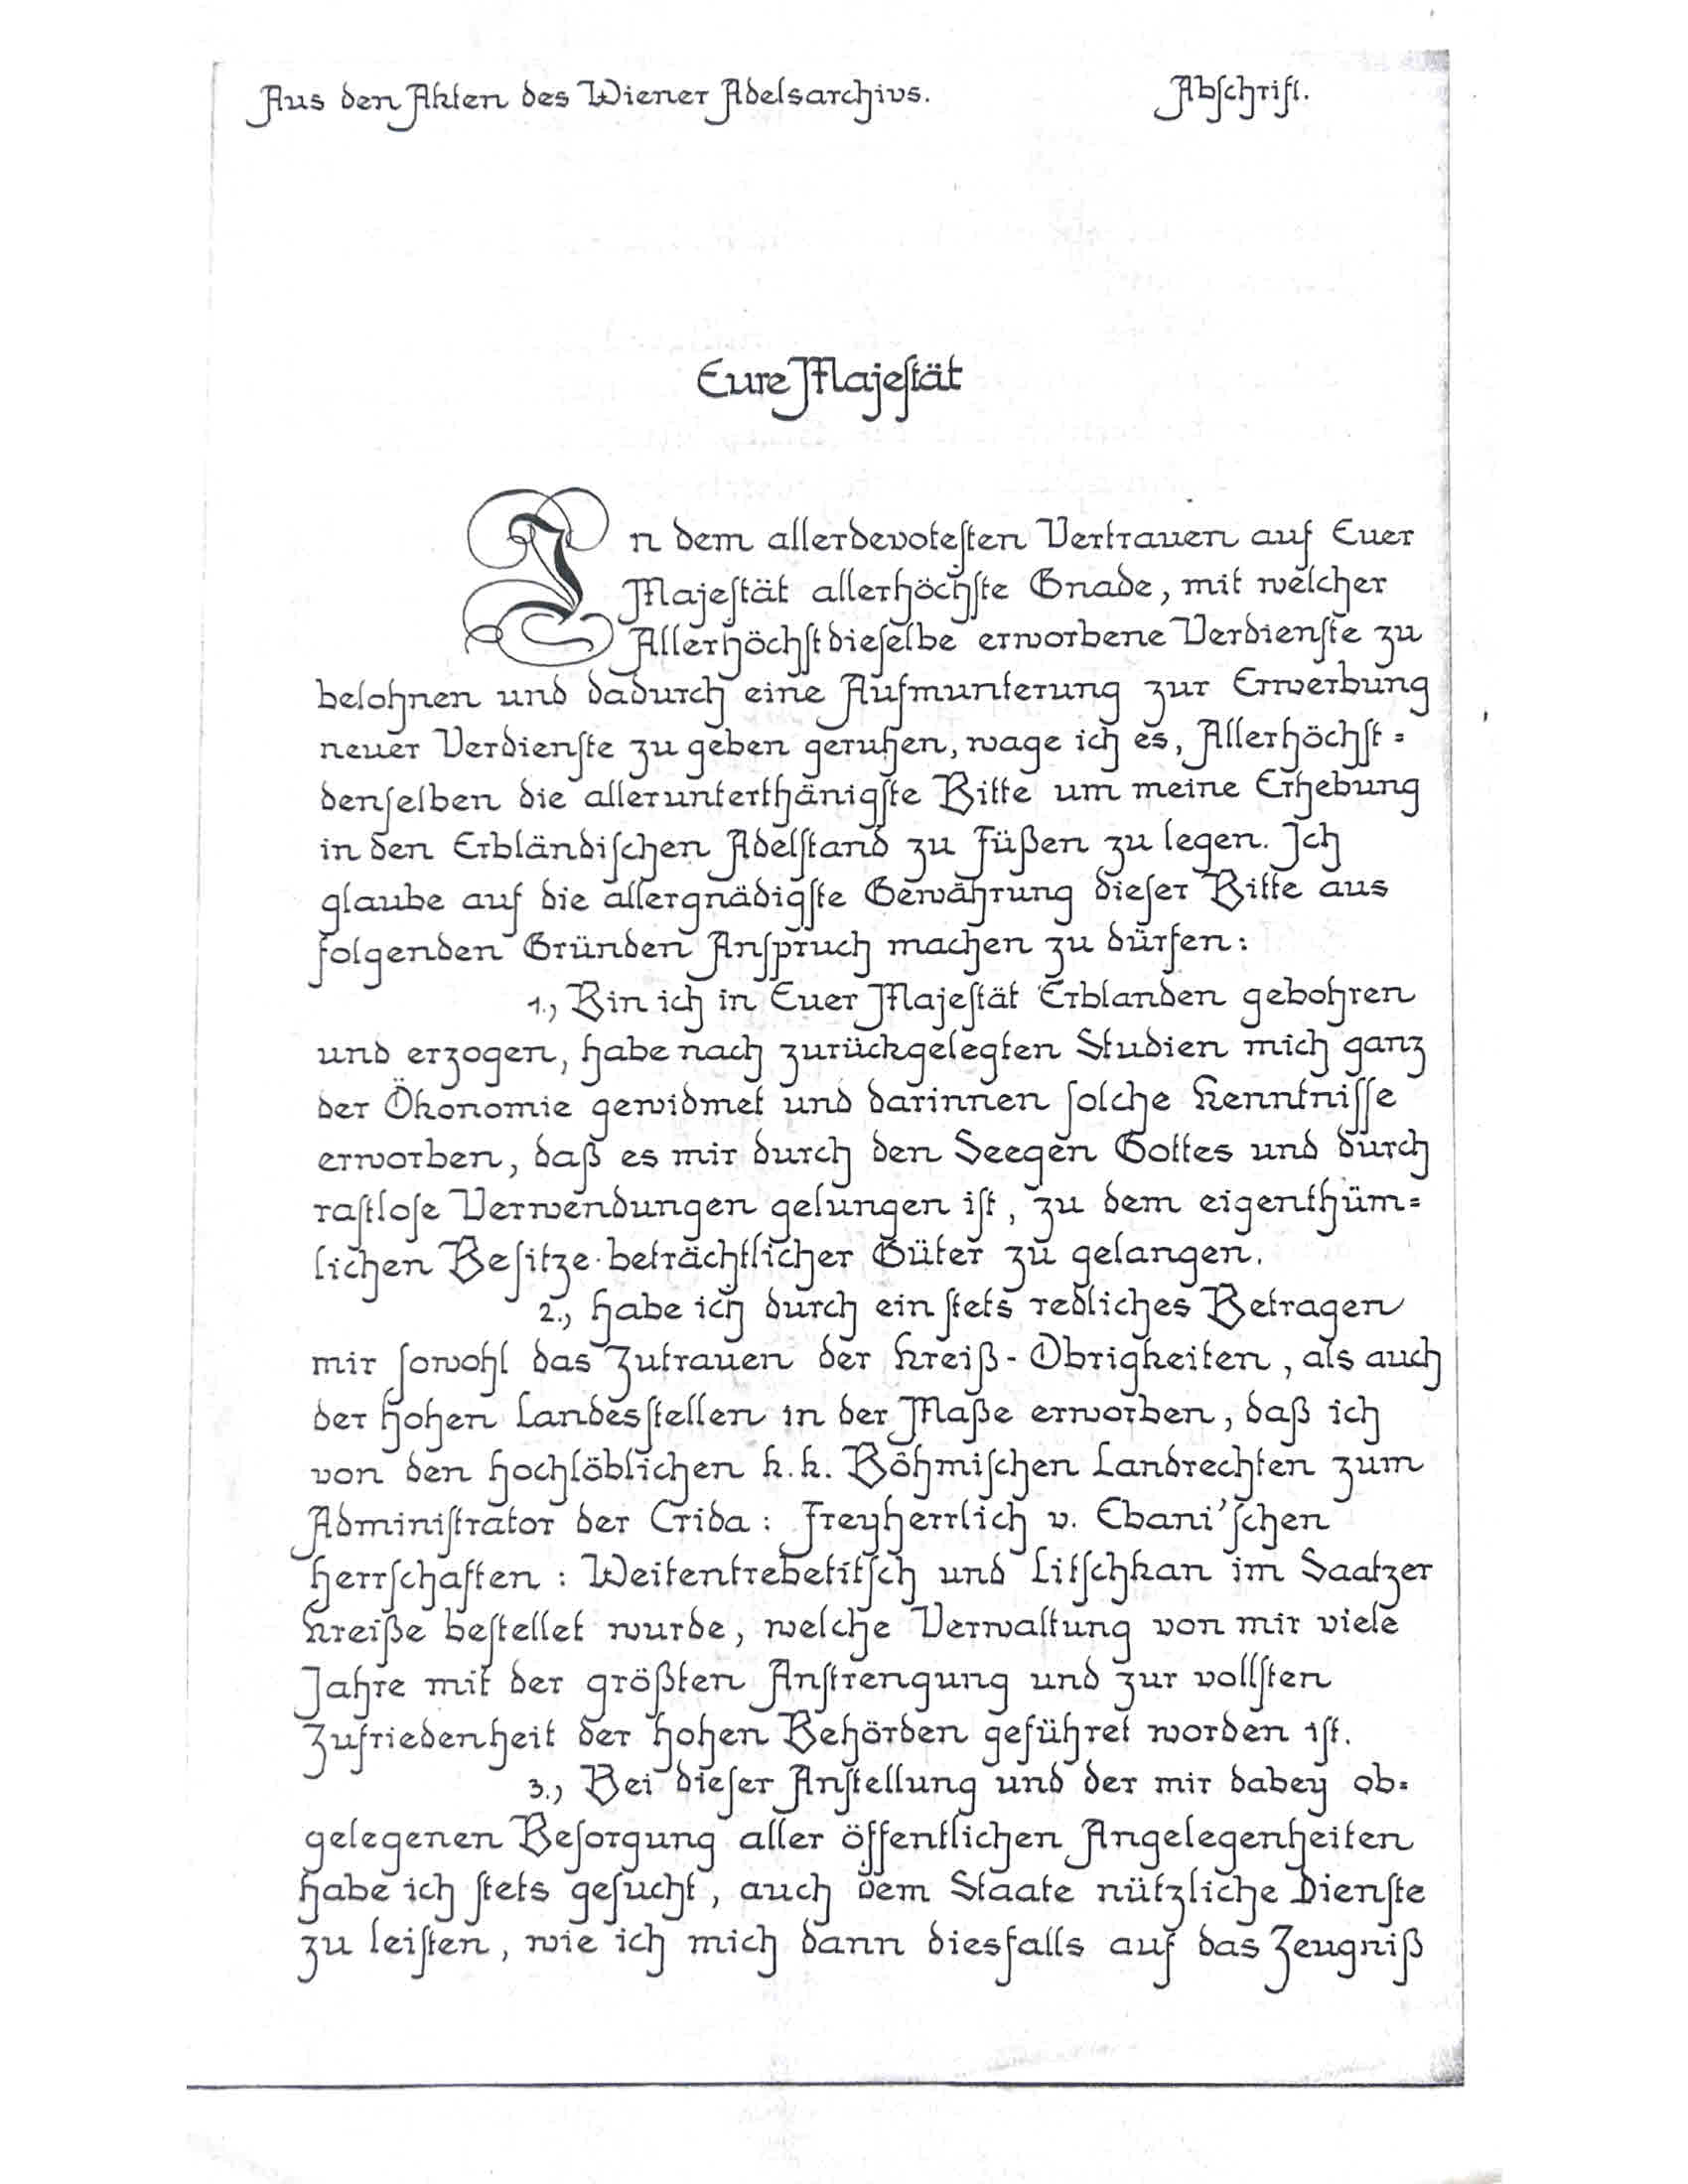 Aus den Akten des Wiener Adelsarchivs. Abschrift.
Eure Majestät
In dem allerdevotesten Vertrauen auf Euer
Majestät allerhöchste Gnade, mit welcher
Allerhöchstdieselbe erworbene Verdienste zu
belohnen und dadurch eine Aufmunterung zur Erwerbung
neuer Verdienste zu geben geruhen, wage ich es, Allerhöchst=
denselben die allerunterthänigste Bitte um meine Erhebung
in den Erbländischen Adelstand zu Füßen zu legen. Ich
glaube auf die allergnädigste Gewährung dieser Bitte aus
folgenden Gründen Anspruch machen zu dürfen:
1., Bin ich in Euer Majestät Erblanden gebohren
und erzogen, habe nach zurückgelegten Studien mich ganz
der Ökonomie gewidmet und darinnen solche Kenntnisse
erworben, daß es mir durch den Seegen Gottes und durch
rastlose Verwendungen gelungen ist, zu dem eigenthüm=
lichen Besitze beträchtlicher Güter zu gelangen.
2., habe ich durch ein stets redliches Betragen
mir sowohl das Zutrauen der Kreiß-Obrigkeiten, als auch
der hohen Landesstellen in der Maße erworben, daß ich
von den hochlöblichen k.k. Böhmischen Landrechten zum
Administrator der Crida: Freyherrlich v. Ebani'schen
Herrschaften: Weitentrebetitsch und Litschkan im Saatzer
Kreiße bestellet wurde, welche Verwaltung von mir viele
Jahre mit der größten Anstrengung und zur vollsten
Zufriedenheit der hohen Behörden geführet worden ist.
3., Bei dieser Anstellung und der mir dabey ob=
gelegenen Besorgung aller öffentlichen Angelegenheiten
habe ich stets gesucht, auch dem Staate nützliche Dienste
zu leisten, wie ich mich dann diesfalls auf das Zeugniß